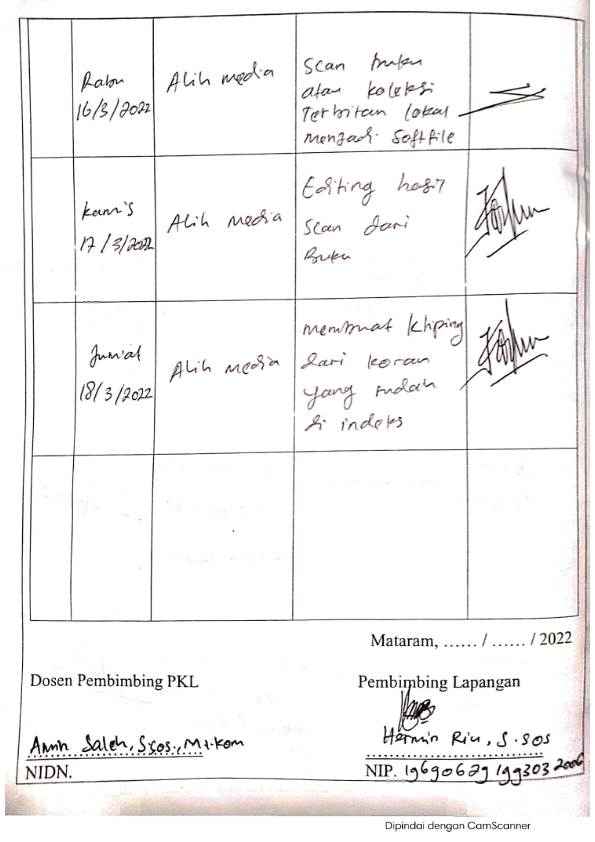 Rabu
16/3/2022
Alih media
Scan buku
atau koleksi
Terbitan lokal
menjadi Softfile
Kamis
17/3/2022
Alih media
Editing hasil
scan dari
Buku
Jum'at
18/3/2022
Alih media
membuat kliping
dari koran
yang sudah
di indeks
Mataram, ...... / ...... / 2022
Dosen Pembimbing PKL
Pembimbing Lapangan
Amin Saleh, S.sos., M.I.kom
Hermin Rini, S.SOS
NIDN.
NIP. 19690629 199303 2006
Dipindai dengan CamScanner